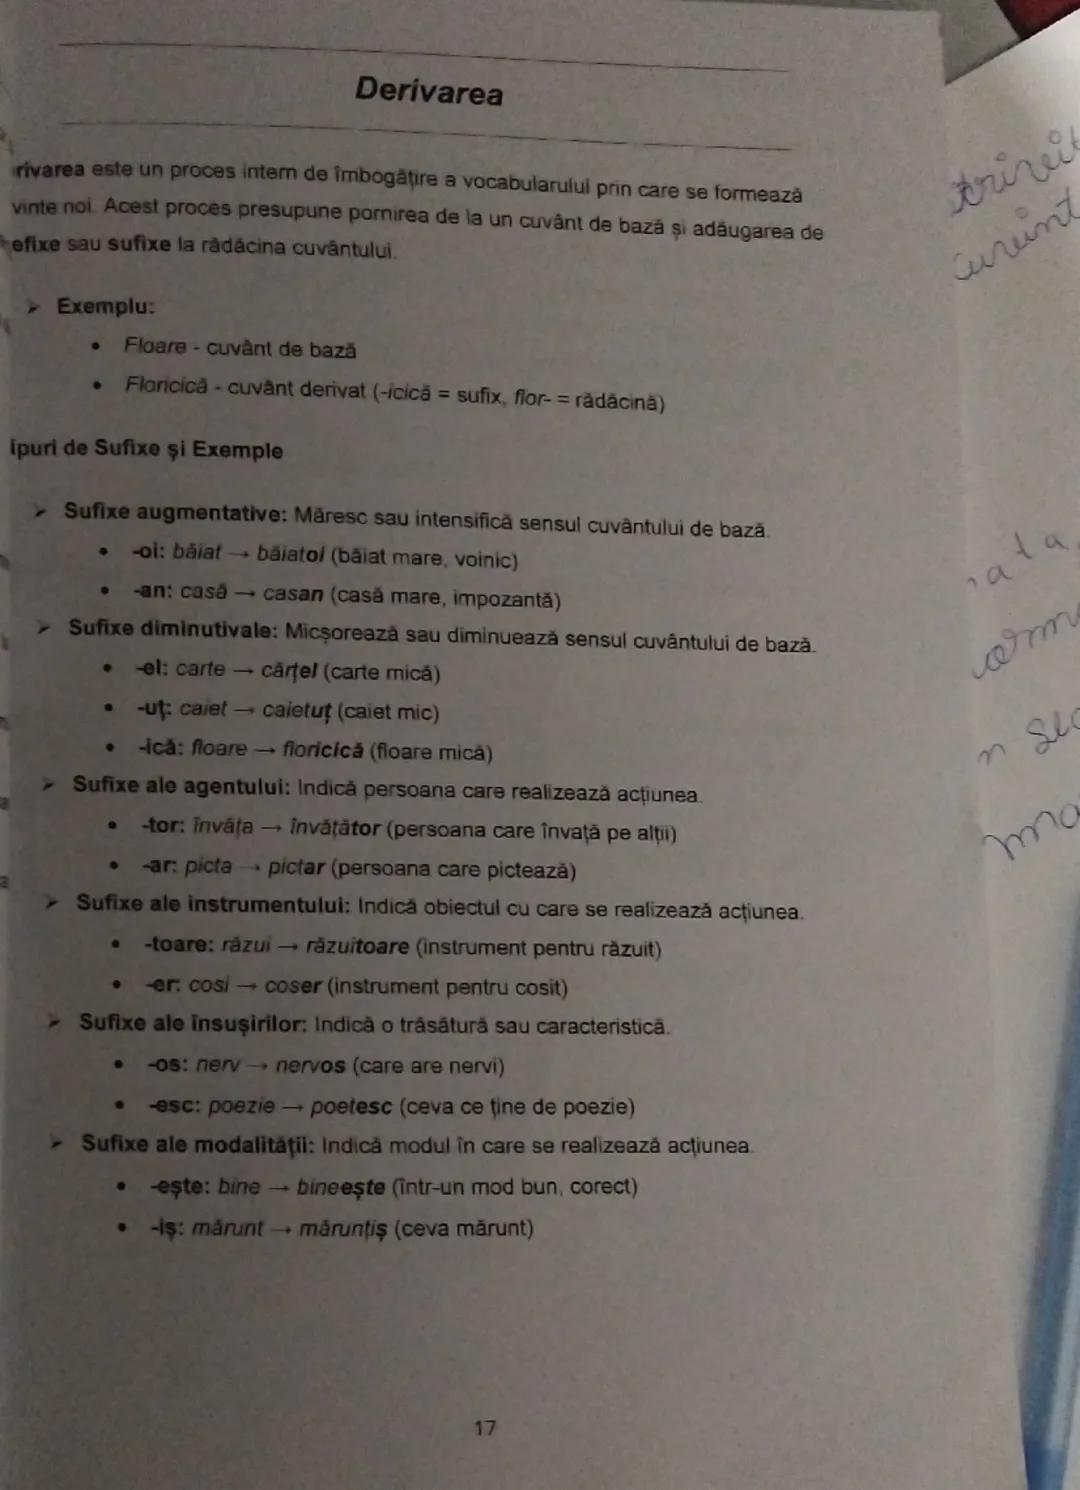 Derivarea
rivarea este un proces intern de îmbogățire a vocabularului prin care se formează
vinte noi. Acest proces presupune pornirea de la un cuvânt de bază și adăugarea de
efixe sau sufixe la rădăcina cuvântului.
➢ Exemplu:
• Floare - cuvânt de bază
• Floricică - cuvânt derivat (-icică = sufix, flor- = rădăcină)
ipuri de Sufixe și Exemple
➢ Sufixe augmentative: Măresc sau intensifică sensul cuvântului de bază.
• -oi: băiat → băiatoi (băiat mare, voinic)
• -an: casă → casan (casă mare, impozantă)
➢ Sufixe diminutivale: Micșorează sau diminuează sensul cuvântului de bază.
• -el: carte → cărțel (carte mică)
• -uț: caiet → caietuț (caiet mic)
• -ică: floare → floricică (floare mică)
➢ Sufixe ale agentului: Indică persoana care realizează acțiunea.
• -tor: învăța → învățător (persoana care învață pe alții)
• -ar: picta → pictar (persoana care pictează)
➢ Sufixe ale instrumentului: Indică obiectul cu care se realizează acțiunea.
• -toare: răzui → răzuitoare (instrument pentru răzuit)
• -er: cosi → coser (instrument pentru cosit)
➢ Sufixe ale însușirilor: Indică o trăsătură sau caracteristică.
• -os: nerv → nervos (care are nervi)
• -esc: poezie → poetesc (ceva ce ține de poezie)
➢ Sufixe ale modalității: Indică modul în care se realizează acțiunea.
• -ește: bine → bineește (într-un mod bun, corect)
• -iș: mărunt → mărunțiș (ceva mărunt)
17